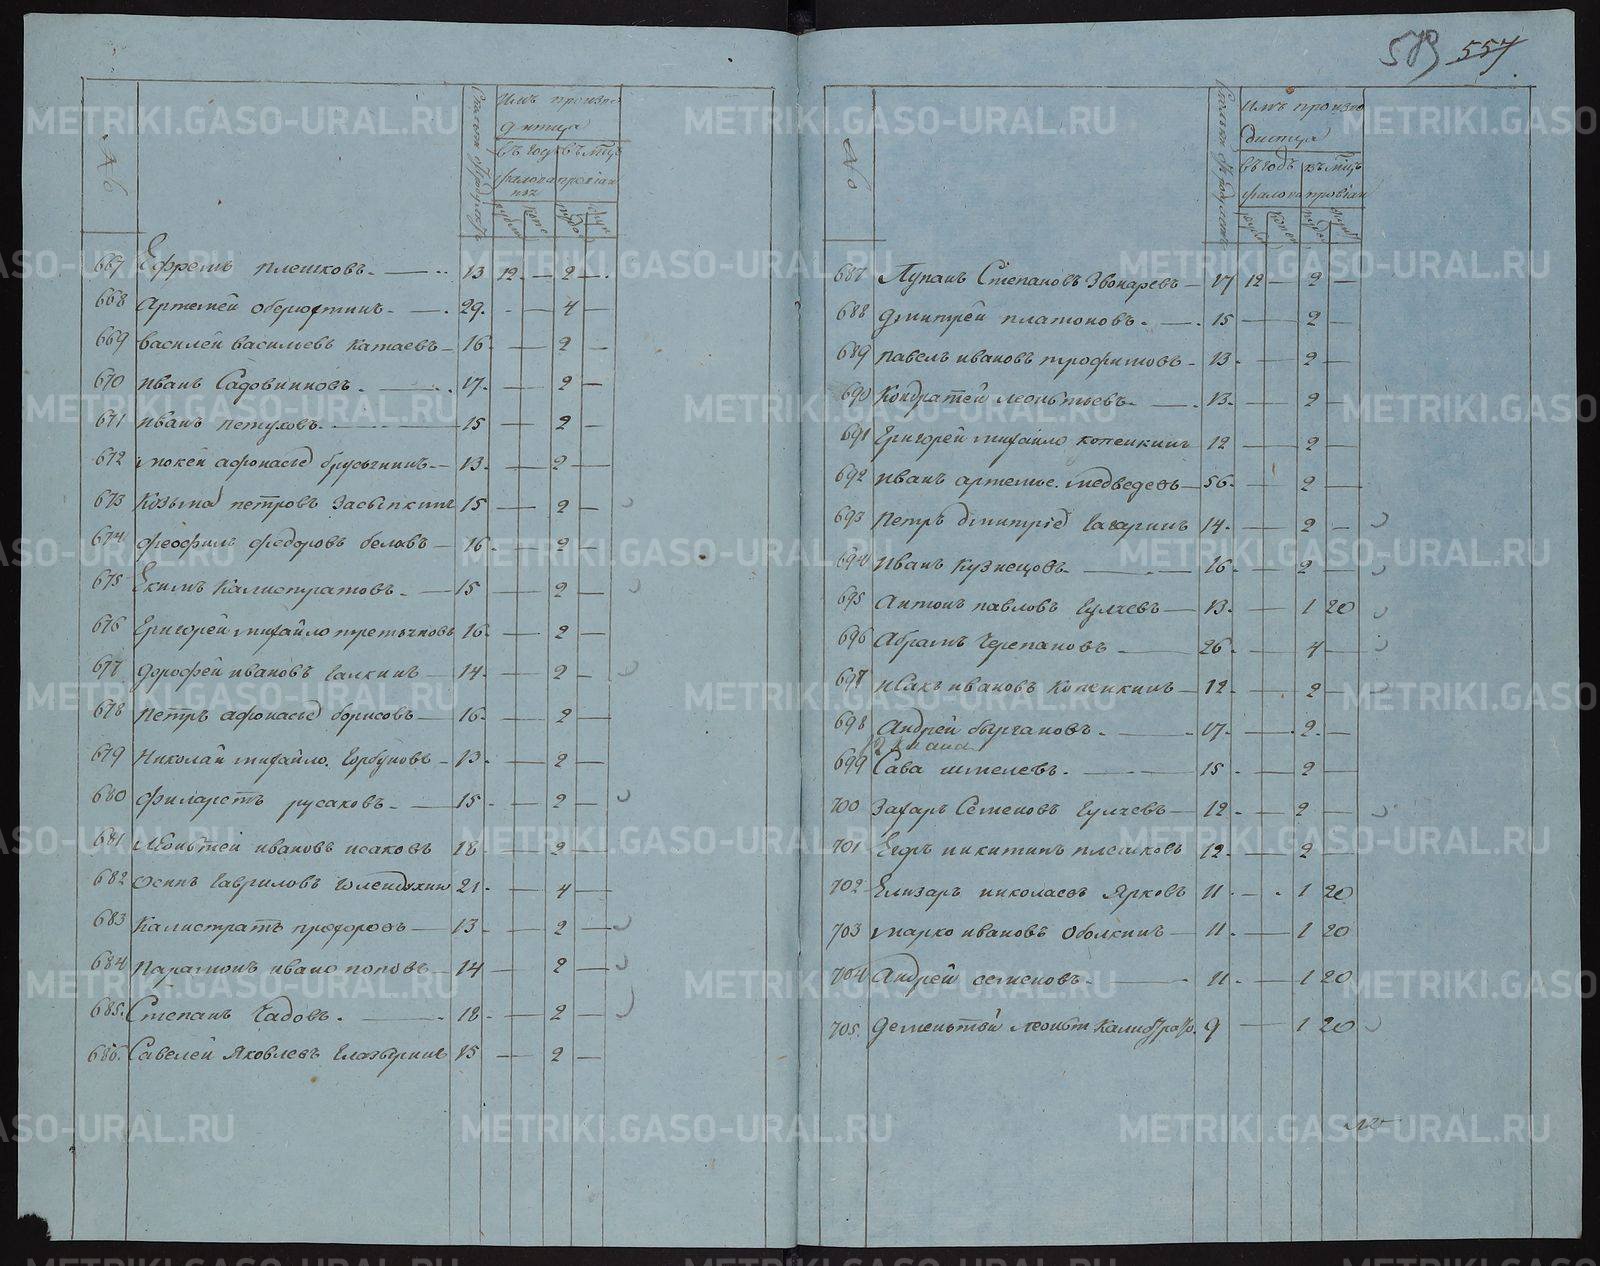 583 557
№
Сколько от роду летъ
Имъ произво
дитца
въ годъ въ мцъ
жалованья провiан
рубли копе пуды фун
667 Ефремъ плешковъ 13 12 — 2 —
668 Артемей оберюхтинъ 29 — 4 —
669 василей васильевъ катаевъ 16 — 2 —
670 иванъ Садовниковъ 17 — 2 —
671 иванъ петуховъ 15 — 2 —
672 мокей афонасье брусницинъ 13 — 2 —
673 Козьма петровъ Засыпкинъ 15 — 2 —
674 феофилъ федоровъ беловъ 16 — 2 —
675 Екимъ Калистратовъ 15 — 2 —
676 Григорей михайло третьяковъ 16 — 2 —
677 дорофей ивановъ галкинъ 14 — 2 —
678 петръ афонасье борисовъ 16 — 2 —
679 Николай михайло. горбуновъ 13 — 2 —
680 филаретъ русаковъ 15 — 2 —
681 леонтей ивановъ исаковъ 18 — 2 —
682 осипъ гавриловъ голендухин 21 — 4 —
683 Калистратъ прохоровъ 13 — 2 —
684 парамонъ ивано поповъ 14 — 2 —
685. Степанъ Чадовъ 18 — 2 —
686. Савелей Яковлевъ глазыринъ 15 — 2 —
№
Сколько от роду летъ
Имъ произво
дитца
въ годъ въ мцъ
жалован провiан
рубли копеи пуды фунт
687 Лупанъ Степановъ Звонаревъ 17 12 — 2 —
688 дмитрей платоновъ 15 — 2 —
689 павелъ ивановъ трофимовъ 13 — 2 —
690 Кондратей леонтьевъ 13 — 2 —
691 Григорей михайло копеикинъ 12 — 2 —
692 иванъ артемье. медведевъ 56 — 2 —
693 петръ дмитрiе гагаринъ 14 — 2 —
694 иванъ Кузнецовъ 16 — 2 —
695 Антонъ павловъ гуляевъ 13 — 1 20
696 Абрамъ Черепановъ 26 — 4 —
697 исакъ ивановъ копеикинъ 12 — 2 —
698 Андрей бычгановъ 17 — 2 —
699 Сава шмелевъ 15 — 2 —
700 Захаръ Семеновъ гуляевъ 12 — 2 —
701 Егоръ никитинъ плешковъ 12 — 2 —
702 Елизаръ николаевъ Ярковъ 11 — 1 20
703 марко ивановъ оболкинъ 11 — 1 20
704 Андрей семеновъ 11 — 1 20
705. дементей леонт Калистрато. 9 — 1 20
METRIKI.GASO-URAL.RU